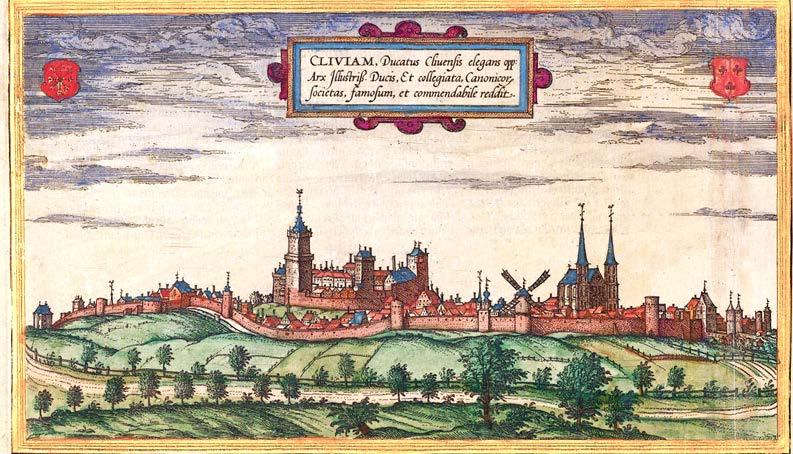 CLIVIAM, Ducatus Cliuensis elegans opp:
Arx Illustriſ. Ducis, Et collegiata, Canonicor,
ſocietas, famoſum, et commendabile reddit.